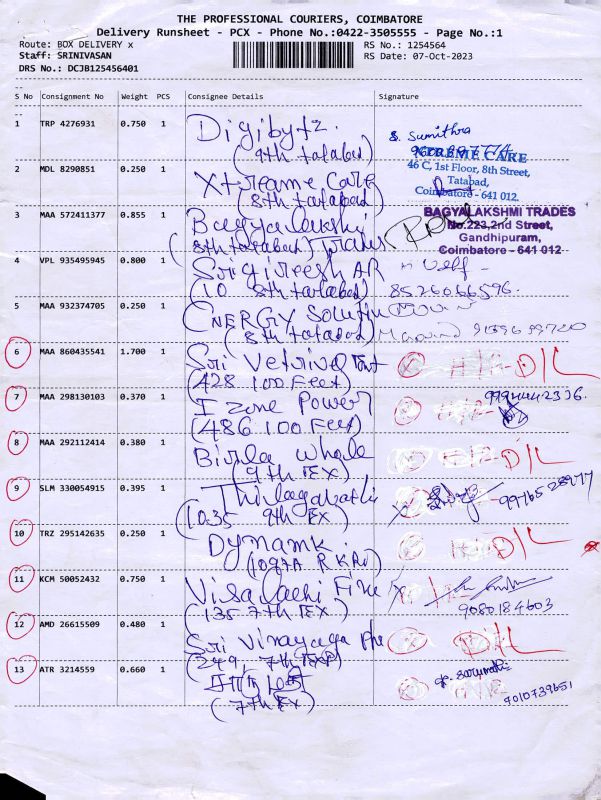 THE PROFESSIONAL COURIERS, COIMBATORE
Delivery Runsheet - PCX - Phone No.:0422-3505555 - Page No.:1
Route: BOX DELIVERY x
RS No.: 1254564
Staff: SRINIVASAN
RS Date: 07-Oct-2023
DRS No.: DCJB125456401
S No Consignment No Weight PCS Consignee Details Signature
1 TRP 4276931 0.750 1 Digibytz.
(9th tatabad)
S. Sumithra
2 MDL 8290851 0.250 1 Xtreame Care
(8th tatabad)
XTREME CARE
46 C, 1st Floor, 8th Street,
Tatabad,
Coimbatore - 641 012.
3 MAA 572411377 0.855 1 Bagyalakshmi
(8th tatabad) Trades
BAGYALAKSHMI TRADES
No.223,2nd Street,
Gandhipuram,
Coimbatore - 641 012
4 VPL 935495945 0.800 1 Sri gireesh AR
(10 8th tatabad)
8526066596.
5 MAA 932374705 0.250 1 ENERGY Solution
(8th tatabad)
6 MAA 860435541 1.700 1 Sri Vetrivel
(428 100 Feet)
D/L
7 MAA 298130103 0.370 1 I zone Power
(486 100 Feet)
8 MAA 292112414 0.380 1 Birla Whole
(9th EX)
D/L
9 SLM 330054915 0.395 1 Thilagavathi
(1035 9th EX)
10 TRZ 295142635 0.250 1 Dynamk.
(1097A R K Rd)
D/L
11 KCM 50052432 0.750 1 Visalachi Fine
(135 7th EX)
9080184603
12 AMD 26615509 0.480 1 Sri Vinayaga
(249, 7th EX)
D/L
13 ATR 3214559 0.660 1
(7th Ex)
9010739651